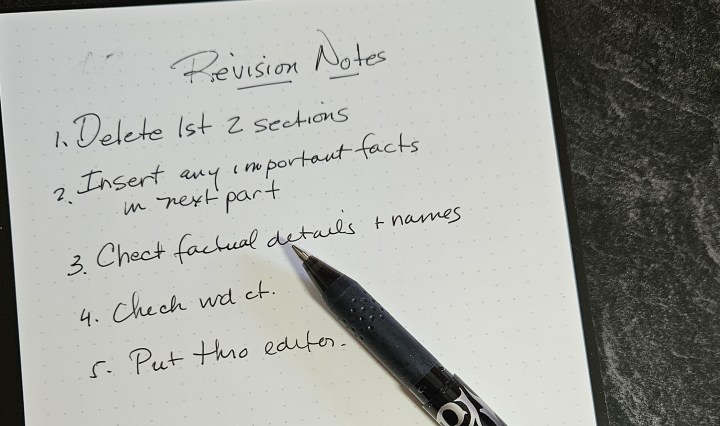 Revision Notes
1. Delete 1st 2 sections
2. Insert any important facts
in next part
3. Check factual details + names
4. Check wd ct.
5. Put thro editor.